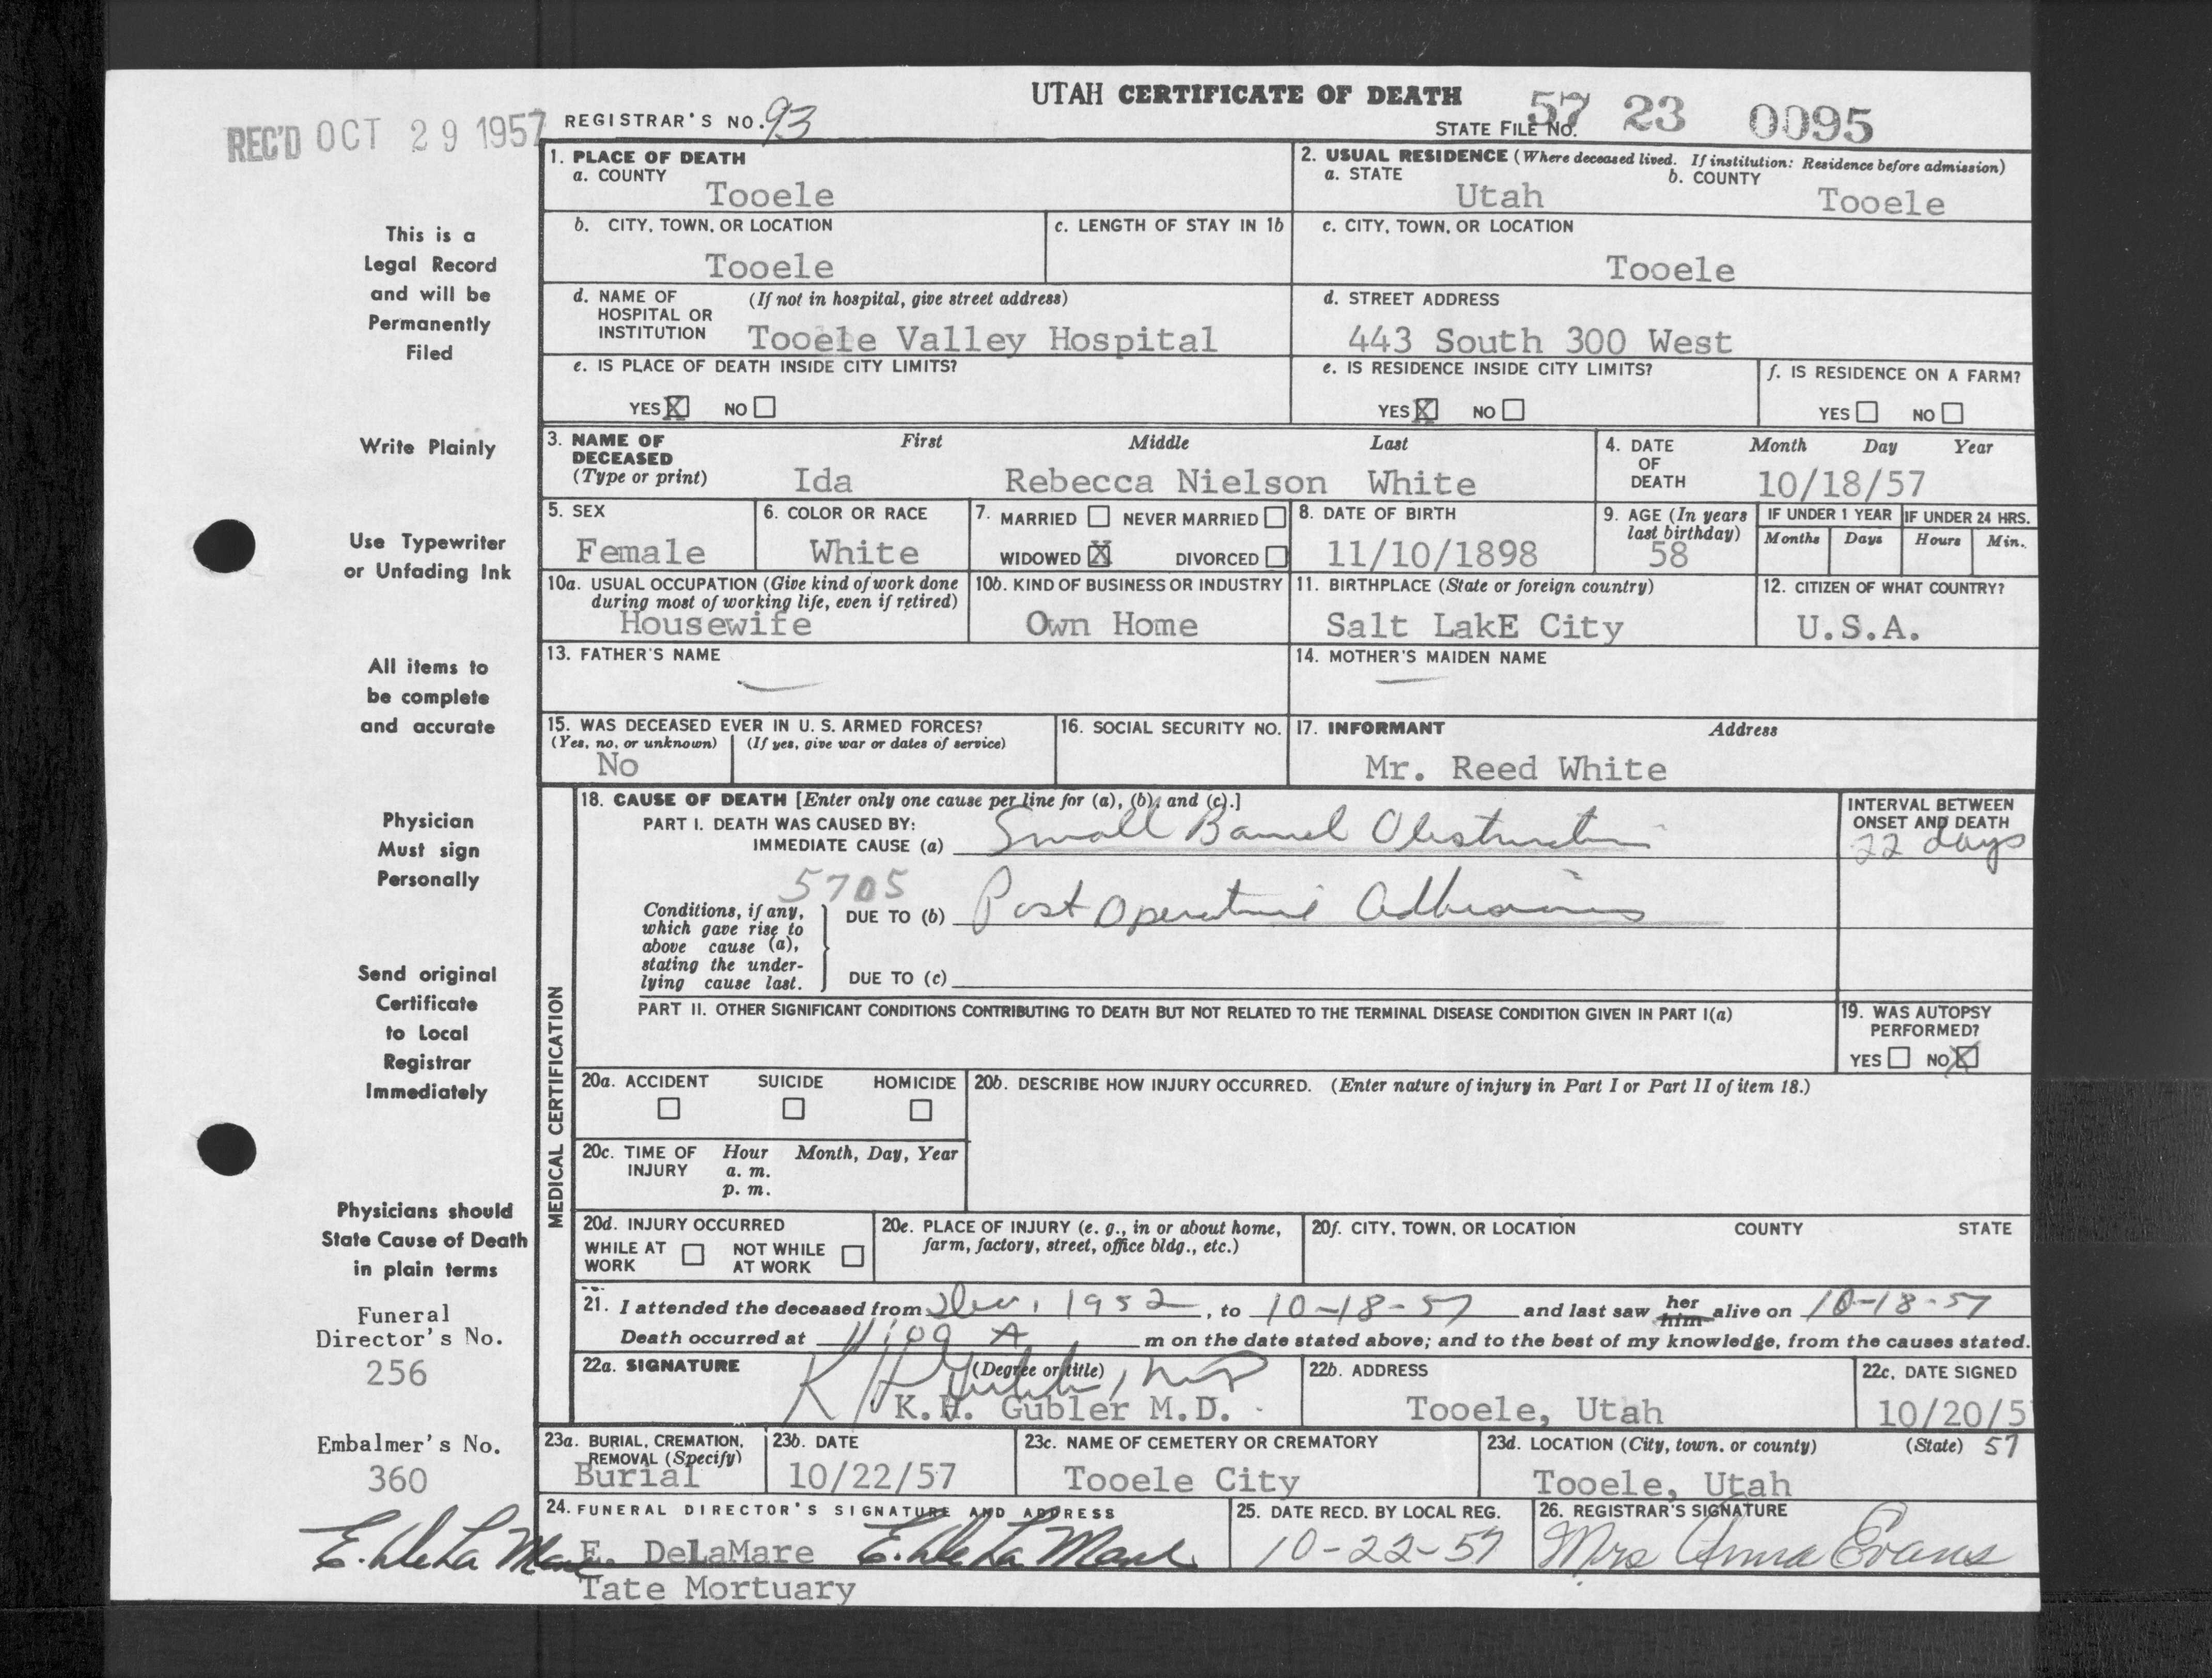 UTAH CERTIFICATE OF DEATH
REC'D OCT 29 1957
REGISTRAR'S NO. 93
STATE FILE NO. 57 23 0095
1. PLACE OF DEATH
a. COUNTY
Tooele
2. USUAL RESIDENCE (Where deceased lived. If institution: Residence before admission)
a. STATE
Utah
b. COUNTY
Tooele
b. CITY, TOWN, OR LOCATION
Tooele
c. LENGTH OF STAY IN 1b
c. CITY, TOWN, OR LOCATION
Tooele
d. NAME OF HOSPITAL OR INSTITUTION
(If not in hospital, give street address)
Tooele Valley Hospital
d. STREET ADDRESS
443 South 300 West
e. IS PLACE OF DEATH INSIDE CITY LIMITS?
YES X NO
e. IS RESIDENCE INSIDE CITY LIMITS?
YES X NO
f. IS RESIDENCE ON A FARM?
YES NO
3. NAME OF DECEASED (Type or print)
First Middle Last
Ida Rebecca Nielson White
4. DATE OF DEATH
Month Day Year
10/18/57
5. SEX
Female
6. COLOR OR RACE
White
7. MARRIED NEVER MARRIED
WIDOWED X DIVORCED
8. DATE OF BIRTH
11/10/1898
9. AGE (In years last birthday)
58
IF UNDER 1 YEAR
Months Days
IF UNDER 24 HRS.
Hours Min.
10a. USUAL OCCUPATION (Give kind of work done during most of working life, even if retired)
Housewife
10b. KIND OF BUSINESS OR INDUSTRY
Own Home
11. BIRTHPLACE (State or foreign country)
Salt LakE City
12. CITIZEN OF WHAT COUNTRY?
U.S.A.
13. FATHER'S NAME
14. MOTHER'S MAIDEN NAME
15. WAS DECEASED EVER IN U. S. ARMED FORCES?
(Yes, no, or unknown) (If yes, give war or dates of service)
No
16. SOCIAL SECURITY NO.
17. INFORMANT Address
Mr. Reed White
MEDICAL CERTIFICATION
18. CAUSE OF DEATH [Enter only one cause per line for (a), (b), and (c).]
PART I. DEATH WAS CAUSED BY:
IMMEDIATE CAUSE (a) Small Bowel Obstruction
INTERVAL BETWEEN ONSET AND DEATH
22 days
5705
Conditions, if any, which gave rise to above cause (a), stating the underlying cause last.
DUE TO (b) Post Operative Adhesions
DUE TO (c)
PART II. OTHER SIGNIFICANT CONDITIONS CONTRIBUTING TO DEATH BUT NOT RELATED TO THE TERMINAL DISEASE CONDITION GIVEN IN PART I(a)
19. WAS AUTOPSY PERFORMED?
YES NO X
20a. ACCIDENT SUICIDE HOMICIDE
20b. DESCRIBE HOW INJURY OCCURRED. (Enter nature of injury in Part I or Part II of item 18.)
20c. TIME OF INJURY
Hour Month, Day, Year
a. m.
p. m.
20d. INJURY OCCURRED
WHILE AT WORK NOT WHILE AT WORK
20e. PLACE OF INJURY (e. g., in or about home, farm, factory, street, office bldg., etc.)
20f. CITY, TOWN, OR LOCATION COUNTY STATE
21. I attended the deceased from 1952, to 10-18-57 and last saw her him alive on 10-18-57
Death occurred at 11:09 A m on the date stated above; and to the best of my knowledge, from the causes stated.
22a. SIGNATURE (Degree or title)
K H Gubler, MD
K.H. Gubler M.D.
22b. ADDRESS
Tooele, Utah
22c. DATE SIGNED
10/20/5
57
23a. BURIAL, CREMATION, REMOVAL (Specify)
Burial
23b. DATE
10/22/57
23c. NAME OF CEMETERY OR CREMATORY
Tooele City
23d. LOCATION (City, town, or county) (State)
Tooele, Utah
24. FUNERAL DIRECTOR'S SIGNATURE AND ADDRESS
E. DeLaMare E. DeLaMare
Tate Mortuary
25. DATE RECD. BY LOCAL REG.
10-22-57
26. REGISTRAR'S SIGNATURE
Mrs Anna Evans
This is a
Legal Record
and will be
Permanently
Filed
Write Plainly
Use Typewriter
or Unfading Ink
All items to
be complete
and accurate
Physician
Must sign
Personally
Send original
Certificate
to Local
Registrar
Immediately
Physicians should
State Cause of Death
in plain terms
Funeral
Director's No.
256
Embalmer's No.
360
E. DeLaMare